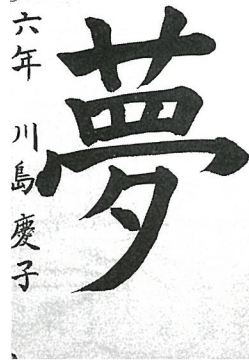 夢
六年 川島慶子